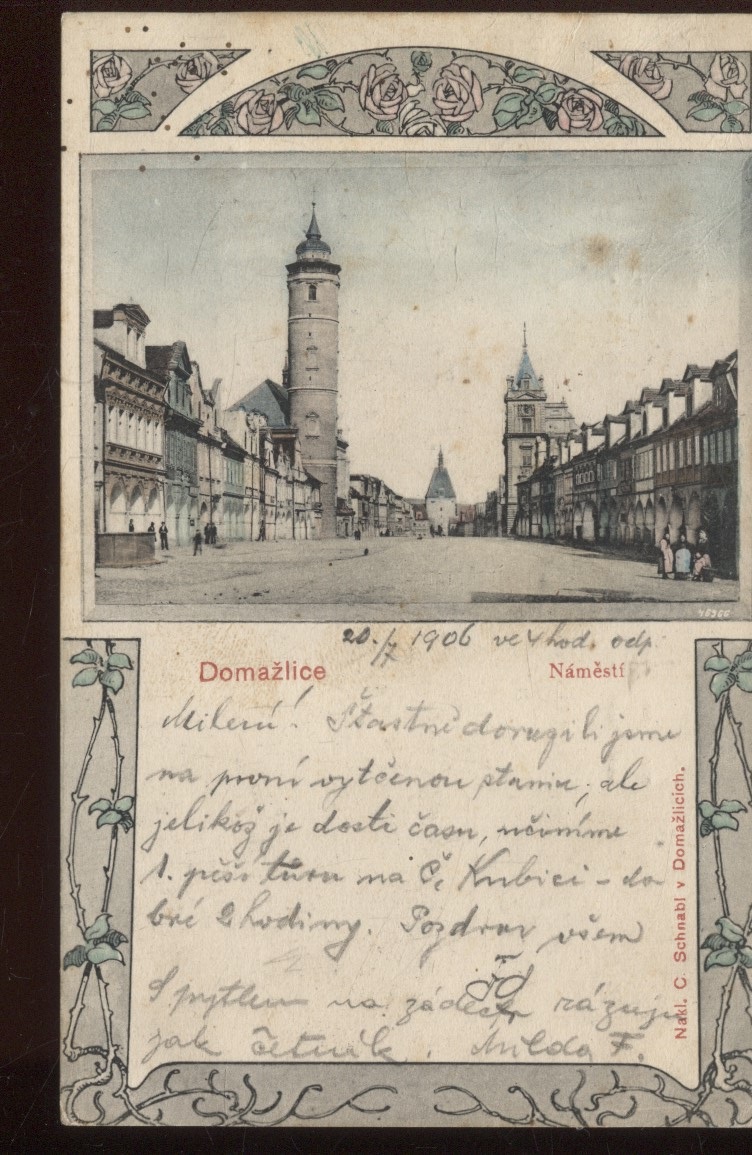 45366
20./7 1906 ve 4 hod. odp.
Domažlice
Náměstí
Milení! Šťastně dorazili jsme
na první vytčenou stanici, ale
jelikož je dosti času, učiníme
1. pěší túru na Č. Kubici - do
bré 2 hodiny. Pozdrav všem
od
S pytlem na zádech rázuju
jak četník. Milda F.
Nakl. C. Schnabl v Domažlicích.